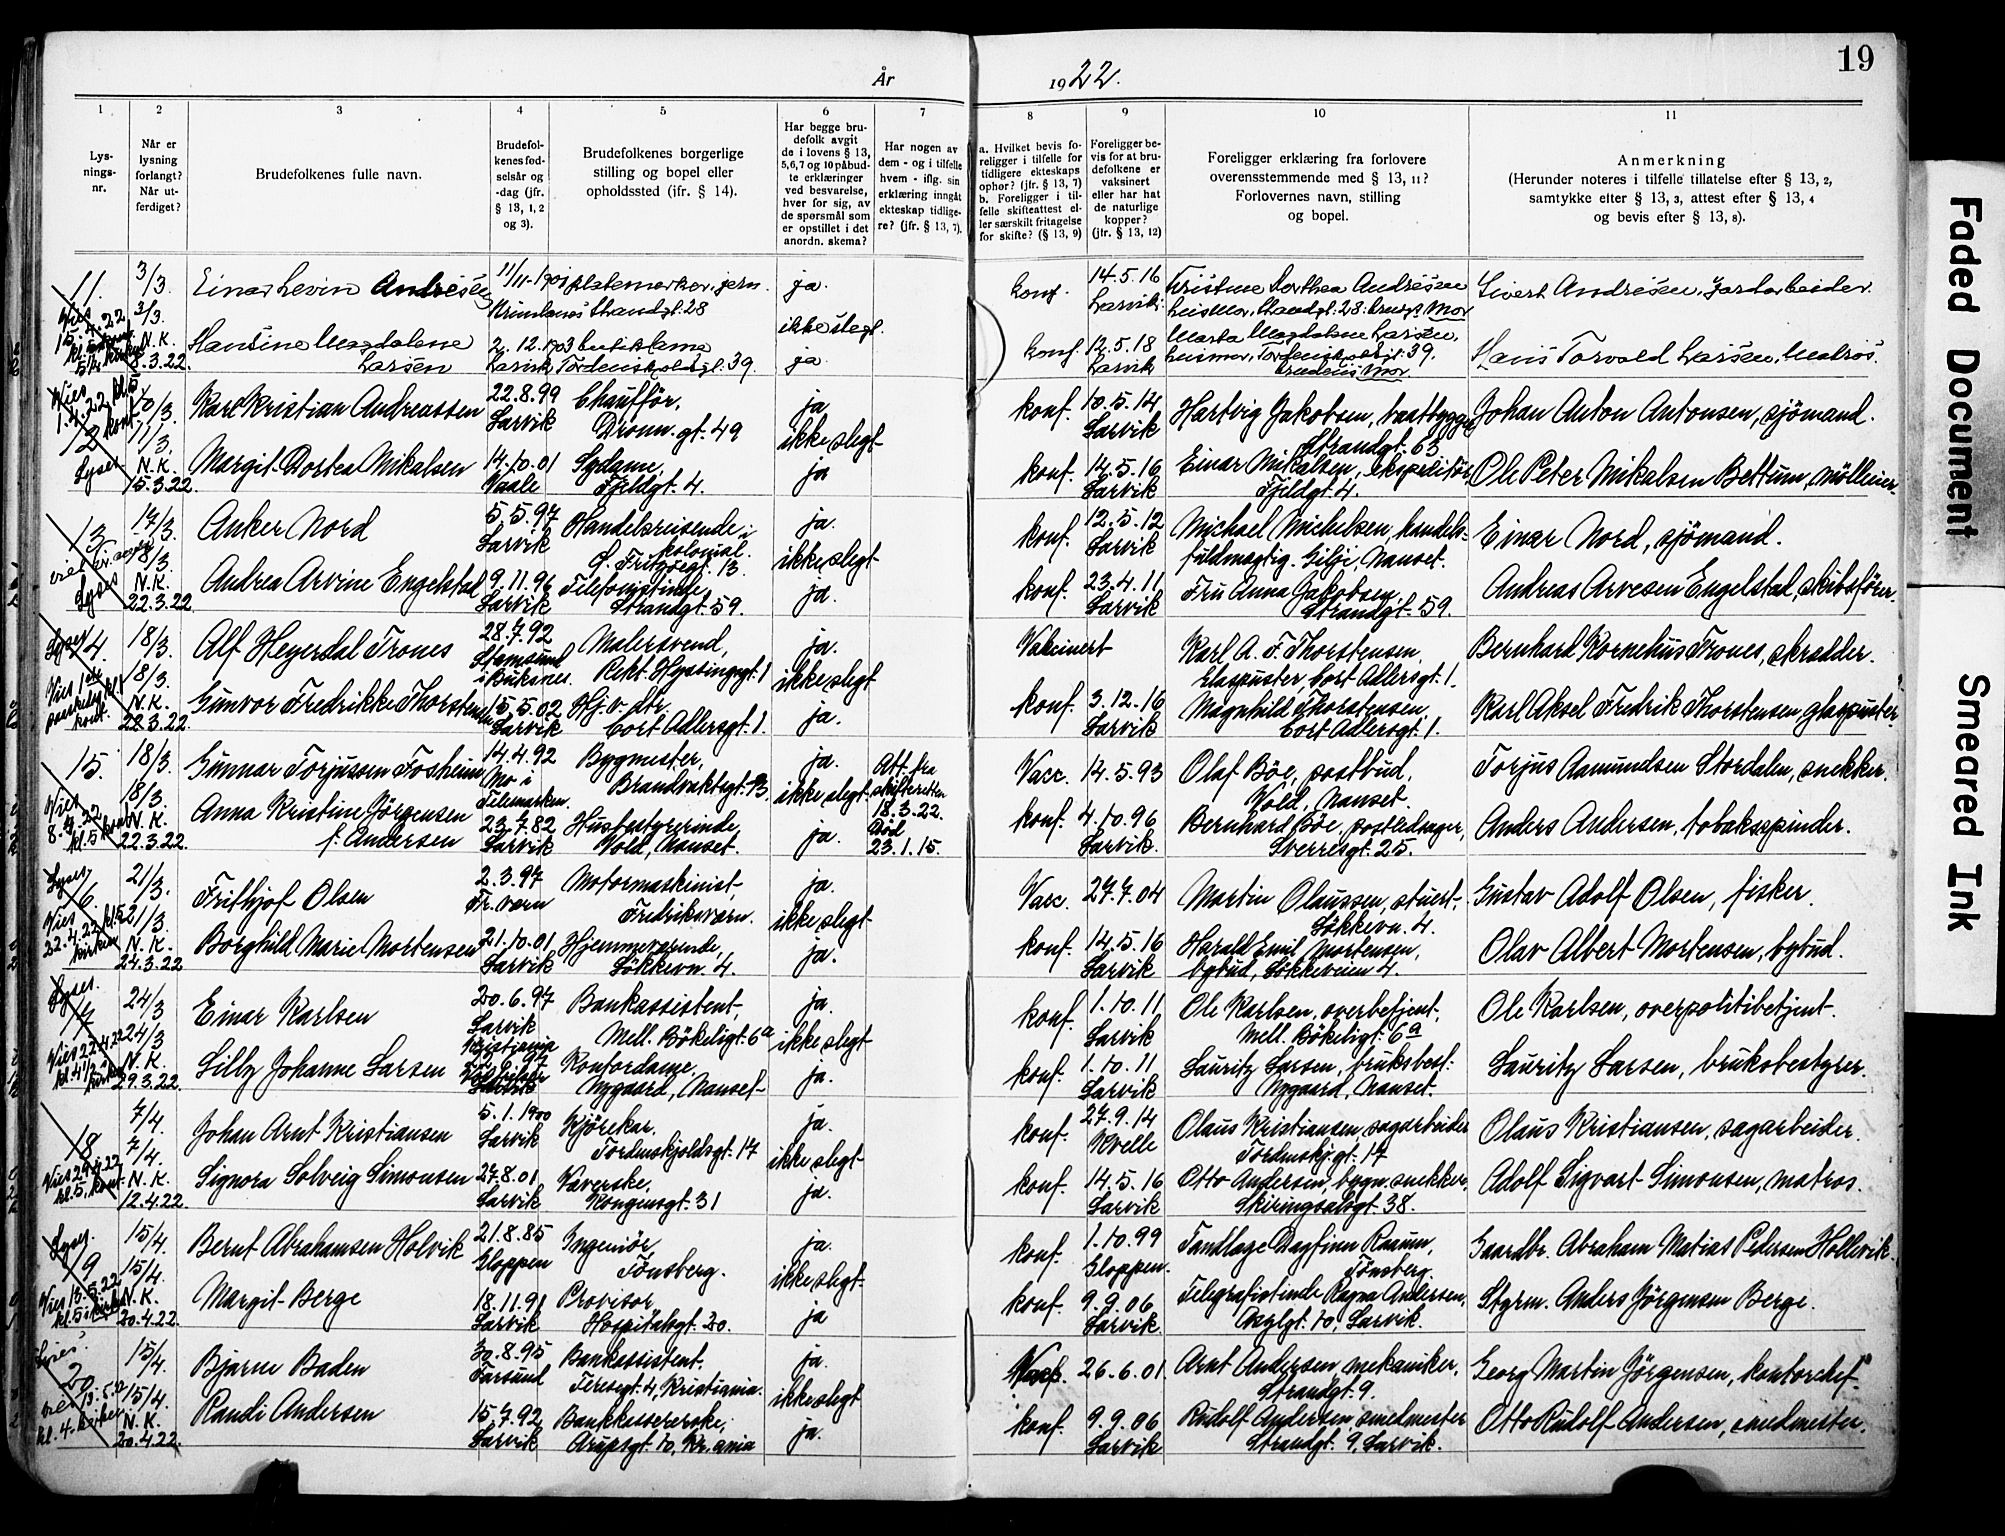 År 1922.
19
1 2 3 4 5 6 7 8 9 10 11
Lys-
nings-
nr.
Når er
lysning
forlangt?
Når ut-
ferdiget?
Brudefolkenes fulle navn.
Brudefol-
kenes fød-
selsår og
-dag (jfr.
§ 13, 1, 2
og 3).
Brudefolkenes borgerlige
stilling og bopel eller
opholdssted (jfr. § 14).
Har begge bru-
defolk avgit
de i lovens § 13,
5,6,7 og 10 påbud-
te erklæringer
ved besvarelse,
hver for sig, av
de spørsmål som
er opstillet i det
anordn. skema?
Har nogen av
dem - og i tilfelle
hvem - iflg. sin
erklæring inngått
ekteskap tidlige-
re? (jfr. § 13, 7).
a. Hvilket bevis fo-
religger i tilfelle for
tidligere ekteskaps
ophør? (jfr. § 13, 7)
b. Foreligger i til-
felle skifteattest el-
ler særskilt fritagelse
for skifte? (§ 13, 9)
Foreligger be-
vis for at bru-
defolkene er
vaksinert
eller har hat
de naturlige
kopper?
(jfr. § 13, 12)
Foreligger erklæring fra forlovere
overensstemmende med § 13, 11?
Forlovernes navn, stilling
og bopel.
Anmerkning
(Herunder noteres i tilfelle tillatelse efter § 13, 2,
samtykke efter § 13, 3, attest efter § 13, 4
og bevis efter § 13, 8).
11. 3/3. Einar Levin Andresen 11/11-1901 ja. konf. 14.5.16 Larvik Kristine Dorthea Andresen Sivert Andresen,
Strandgt. 28 ikke slegt. Strandgt. 28. Mor
3/3. N.K. Hansine Magdalene Larsen 2.12.1903 Larvik Tordenskjoldsgt. 39. ja konf. 12.5.18 Larvik Marta Magdalene Larsen, Hans Torvald Larsen, Matros.
Tordenskjoldsgt. 39. Mor
12 10/3. Karl Kristian Andreassen 22.8.99 Larvik Chaufför, Dronn. gt. 49 ja ikke slegt konf. 10.5.14 Larvik Hartvig Jakobsen, baatbygger Strandgt. 63 Johan Anton Antonsen, sjömand.
Lyser 11/3. N.K. 15.3.22. Margit Dortea Mikalsen 14.10.01 Vaale Sydame, Fjeldgt. 4. ja konf. 14.5.16 Larvik Einar Mikalsen, ekspeditör Fjeldgt. 4. Ole Peter Mikalsen Bettum, möllein-
13 17/3. Anker Nord 5.5.97 Larvik Handelsreisende i kolonial. Ö. Fritzöegt. 13. ja. ikke slegt konf. 12.5.12 Larvik Michael Michelsen, handels- fuldmægtig. Gilje, Nanset. Einar Nord, sjömand.
18/3. N.K. 22.3.22 Andrea Arvine Engelstad 9.11.96 Larvik Telefonistinde, Strandgt. 59. ja. konf. 23.4.11 Larvik Fru Anna Jakobsen, Strandgt. 59. Andreas Arvesen Engelstad, skibsförer.
14. 18/3. Alf Heyerdal Trones 28.7.92 Stamsund i Buksnes. Malersvend, Rekt. Hysingsgt. 1 ja. ikke slegt Vakcinert Karl A. F. Thorstensen, Glaspuster, Cort Adlersgt. 1. Bernhard Kornelius Trones, skrædder.
18/3. N.K. 22.3.22 Gunvor Fredrikke Thorstensen 15.5.02 Larvik Hj. v. dtr. Cort Adlersgt. 1. ja. konf. 3.12.16 Larvik Magnhild Thorstensen, Cort Adlersgt. 1. Karl Aksel Fredrik Thorstensen, glaspuster.
15. 18/3. Gunnar Torjussen Fosheim 14.4.92 Mo i Telemarken. Bygmester, Brandvaktsgt. 13. ja. ikke slegt Att. fra skifteretten 18.3.22. Vacc. 14.5.93 Olaf Böe, postbud, Vold, Nanset. Torjus Aamundsen Stordalen, snekker.
Vies 8.4.22 kl. 5 18/3. N.K. 22.3.22. Anna Kristine Jörgensen f. Andersen 23.7.82 Larvik Husbestyrerinde, Vold, Nanset. ja. Död 23.1.15. konf. 4.10.96 Larvik. Bernhard Böe, postledsager, Sverresgt. 25. Anders Andersen, tobakspinder.
Lyser, 16. 21/3. Frithjof Olsen 2.3.97 Fr. værn Motormaskinist, Fredriksværn. ja. ikke slegt Vacc. 27.7.04 Martin Olaussen, stuert, Lökkevn. 4. Gustav Adolf Olsen, fisker.
Vies 22.4.22 kl. 5 kirken 21/3. N.K. 24.3.22 Borghild Marie Mortensen 21.10.01 Larvik Hjemmeværende, Lökkevn. 4. ja. konf. 14.5.16 Larvik Harald Emil Mortensen, bybud, Lökkeveien 4. Olav Albert Mortensen, bybud.
Lyser. 17 24/3 Einar Karlsen 20.6.97 Larvik Bankassistent, Mell. Bökeligt. 6a ja. ikke slegt konf. 1.10.11 Larvik Ole Karlsen, overbetjent, Mell. Bökeligt. 6a Ole Karlsen, overpolitibetjent.
Vies 22.4.22 kirken 24/3 N.K. 29.3.22 Lilly Johanne Larsen Kristiania Kontordame, Nygaard, Nanset ja. konf. 1.10.11 Larvik Lauritz Larsen, bruksbest. Nygaard, Nanset. Lauritz Larsen, bruksbestyrer.
18 7/4. Johan Arnt Kristiansen 5.1.1900 Larvik Kjörekar. Tordenskjoldsgt. 17 ja. ikke slegt konf. 27.9.14 Kvelle Olaus Kristiansen, sagarbeider Tordenskj. gt. 17 Olaus Kristiansen, sagarbeider.
7/4. N.K. 12.4.22. Signora Solveig Simonsen 27.8.01 Larvik Væverske, Kongensgt. 31 ja. konf. 14.5.16 Larvik Otto Andersen, bygn. snekker, Skiringsalsgt. 38. Adolf Sigvart Simonsen, matros.
Lyser. 19 15/4. Bernt Abrahamsen Holvik 21.8.85 Gloppen Ingeniör, Tönsberg. ja. ikke slegt konf. 1.10.99 Gloppen. Tandlæge Dagfinn Raaum, Tönsberg. Gaardbr. Abraham Matias Pedersen Hollevik.
Vies 13.5.22 kl. 5 i kirken 15/4. N.K. 20.4.22. Margit Berge 18.11.91 Larvik Provisor Hospitalsgt. 20. ja konf. 9.9.06 Larvik Telegrafistinde Ragna Andersen, Asylgt. 10, Larvik. Styrm. Anders Jörgensen Berge.
20 15/4. Bjarne Baden 30.8.95 Farsund Bankassistent. Teresegt. 4, Kristiania. ja. ikke slegt Vacc. 26.6.01 Arnt Andersen mekaniker, Strandgt. 9. Georg Martin Jörgensen, kontorchef.
kl. 4. kirken 15/4. N.K. 20.4.22 Randi Andersen 15.7.92 Larvik Bankkassererske, Arupsgt. 10, Kr.ania ja. konf. 9.9.06 Larvik Rudolf Andersen smedmester Strandgt. 9. Larvik. Otto Rudolf Andersen, smedmester.
Faded Document
Smeared Ink